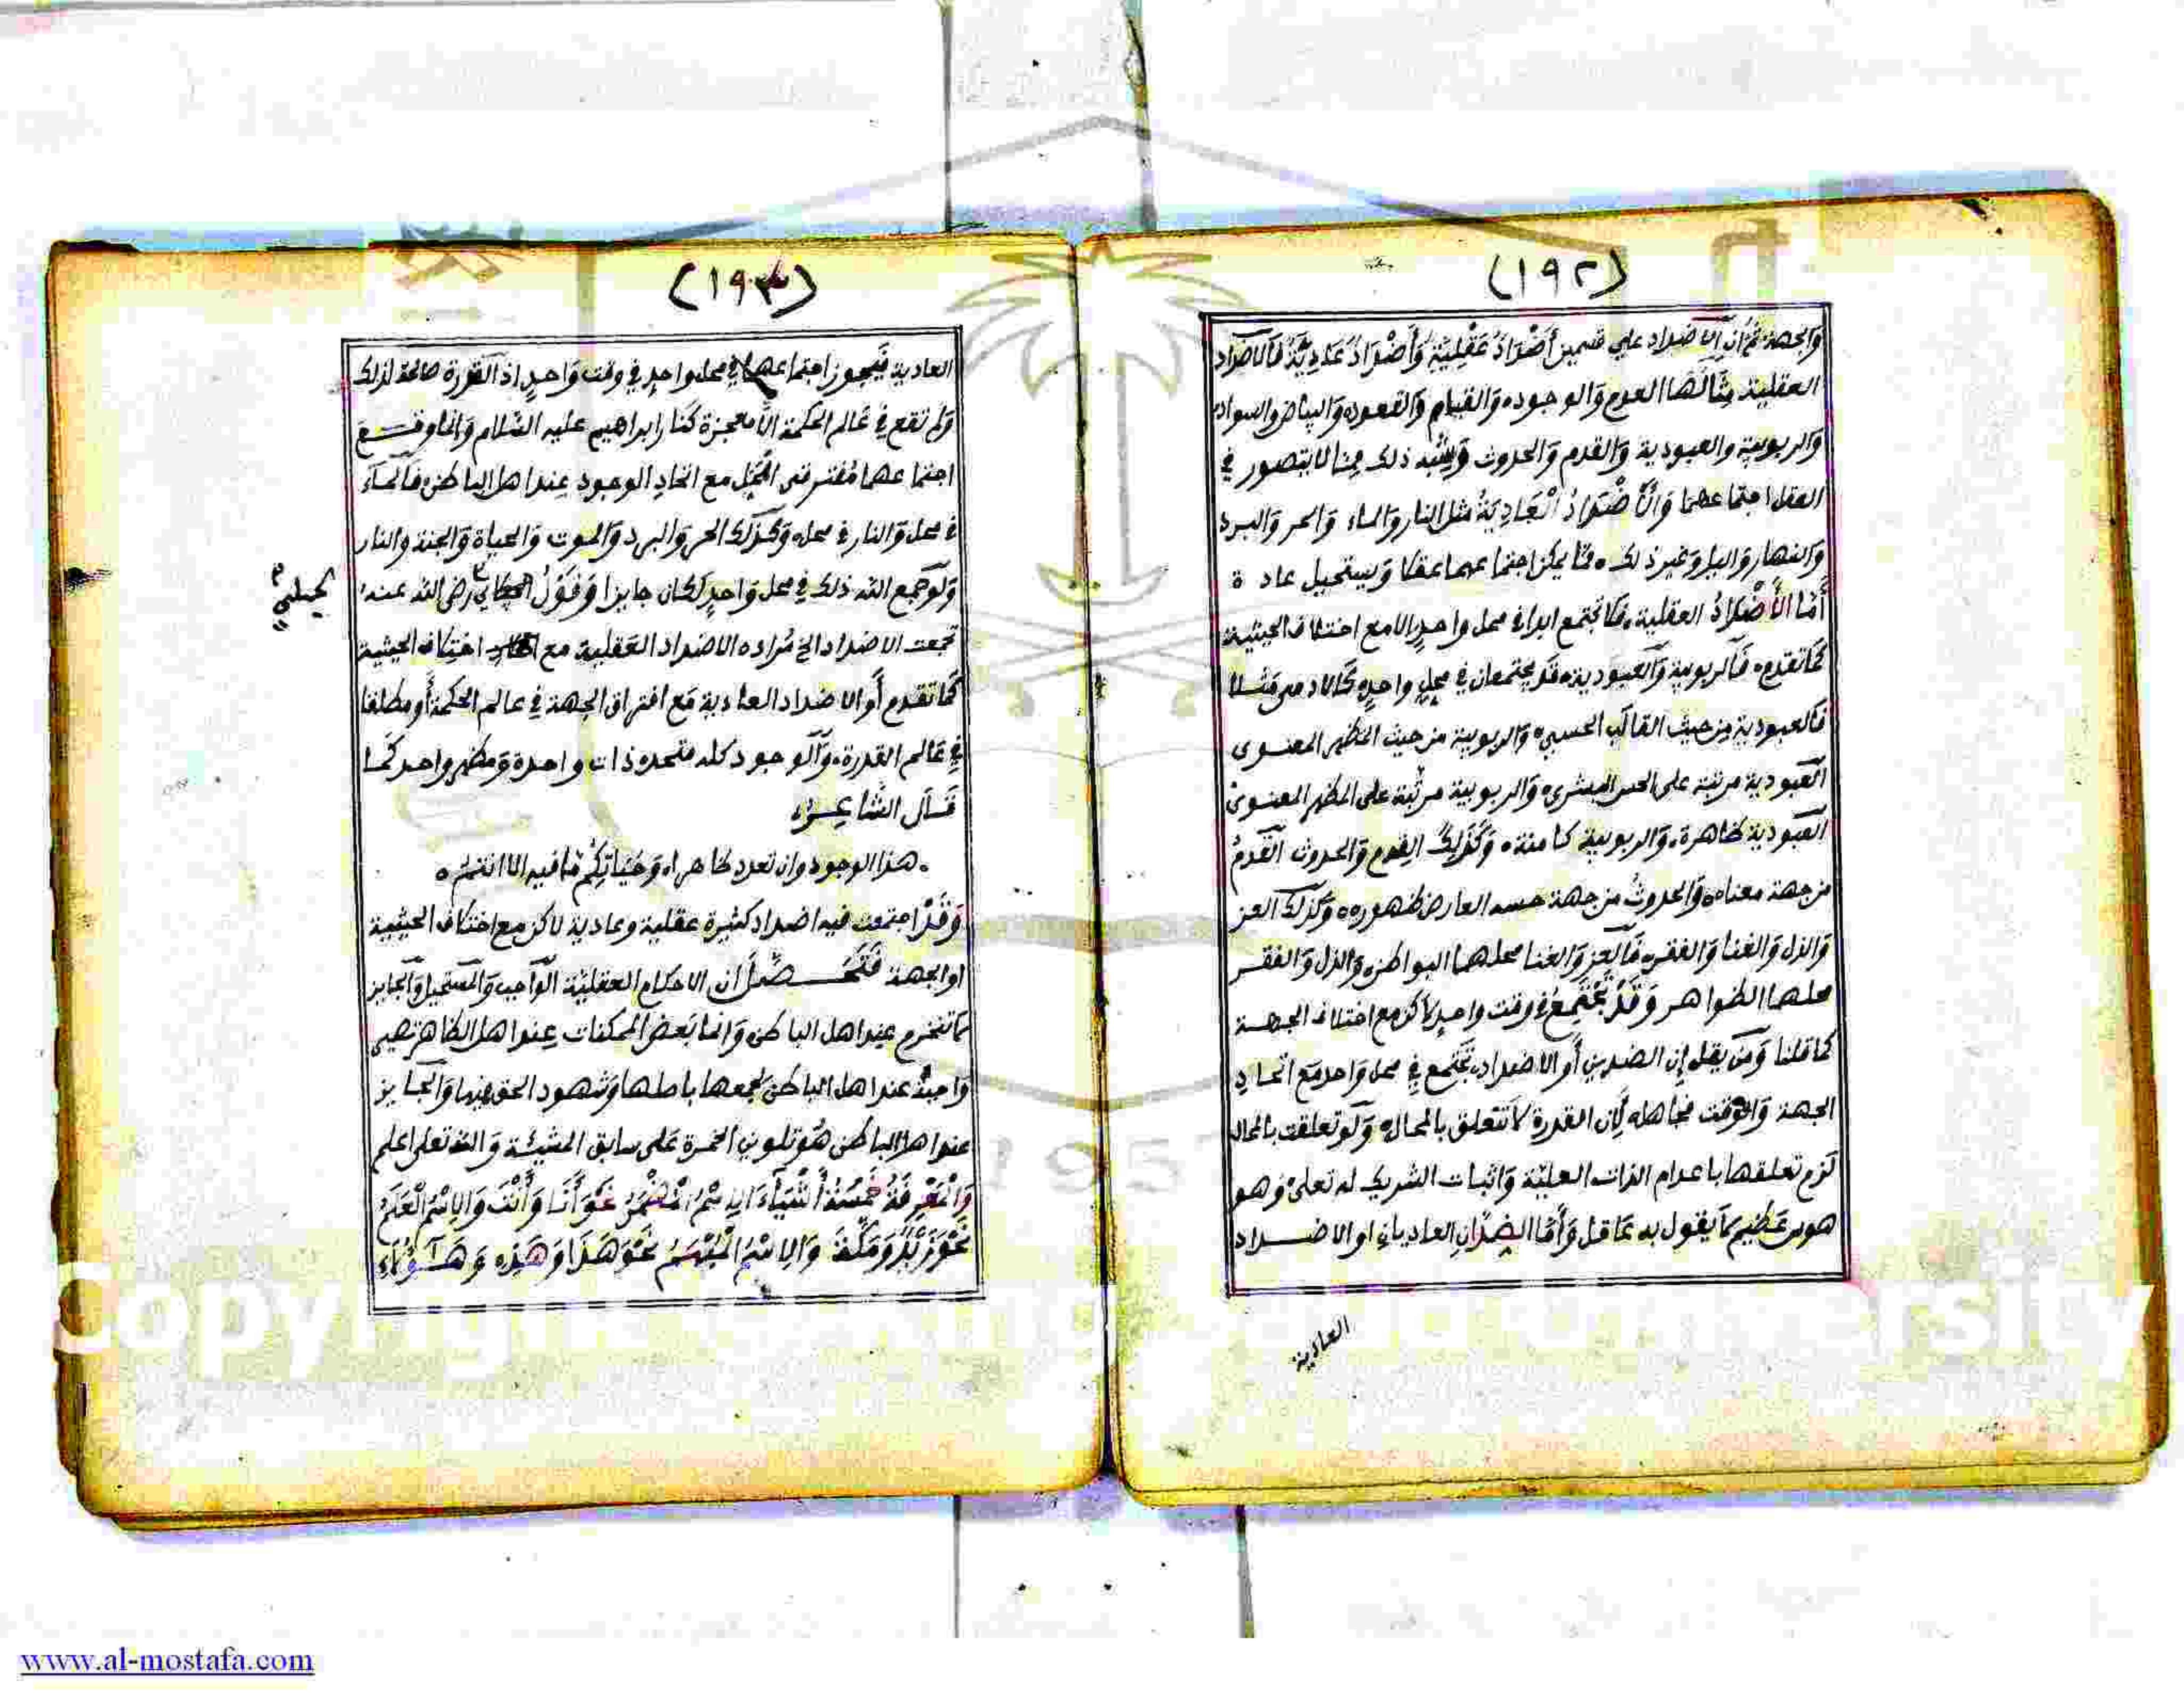 (١٩٢)
والجهة ثم إن الأضداد علي قسمين أَضْدَادٌ عَقْلِيَّةٌ وَأَضْدَادٌ عَادِيَّةٌ فالاضداد
العقلية مثالها العدم والوجود، والقيام والقعود، والبياض والسواد،
والربوبية والعبودية والقدم والحدوث وشبه ذلك مما لا يتصور في
العقل اجتماعهما وَالْأَضْدَادُ الْعَادِيَةُ مثل النار والماء والحر والبرد
والنهار واليل وغير ذلك، مما يمكن اجتماعهما عقلا ويستحيل عادة
أَمَّا الأَضْدَادُ العقلية، فلا تجتمع ابدا في محل واحد إلا مع اختلاف الحيثية
كما تقدم، فالربوبية والعبودية، قد يجتمعان في محل واحد، كالادمي مثلا
فالعبودية من حيث القالب الحسي، والربوبية من حيث المظهر المعنوي
العبودية مرتبة على الحس البشري، والربوبية مرتبة على المظهر المعنوي
العبودية ظاهرة، والربوبية كامنة، وكذلك القدم والحدوث القدم
من جهة معناه، والحدوث من جهة حسه العارض ظهوره، وكذلك العز
والذل والغنا والفقر، فالعز والغنا محلهما البواطن، والذل والفقر
محلهما الظواهر وَقَدْ تَجْتَمِعُ في وقت واحد لاكن مع اختلاف الجهة
كما قلنا ومن يقل إن الضدين أو الاضداد، تجتمع في محل واحد مع اتحاد
الجهة والوقت فجاهل، لأن القدرة لا تتعلق بالمحال، ولو تعلقت بالمحال
لزم تعلقها باعدام الذات العلية واثبات الشريك له تعلى وهو
هوس عظيم لا يقول به عاقل وَأَمَّا الضدان العاديان او الاضداد
العادية
(١٩٣)
العادية فيجوز اجتماعهما في محل واحد في وقت واحد اذ القدرة صالحة لذلك
ولم تقع في عالم الحكمة الا معجزة كنار ابراهيم عليه السلام وانما وقع
اجتماعهما مفترقي المحل مع اتحاد الوجود عند اهل الباطن، فالماء
في محل والنار في محل، وكذلك الحر والبرد والموت والحياة والجنة والنار
ولو جمع الله ذلك في محل واحد لكان جايزا وقول رضي الله عنه،
تجمعت الاضداد الخ مراده الاضداد العقلية مع اختلاف الحيثية
كما تقدم أو الاضداد العادية مع افتراق الجهة في عالم الحكمة أو مطلقا
في عالم القدرة، والوجود كله متحد، ذات واحدة ومظهر واحد كما
قَالَ الشَّاعِرُ،
، هذا الوجود وان تعدد ظاهرا، وحياتكم ما فيه الا انتم،
وَقَدْ اجتمعت فيه اضداد كثيرة عقلية وعادية لاكن مع اختلاف الحيثية
او الجهة فَتَحَصَّلَ أن الاحكام العقلية الواجب والمستحيل والجايز
لا تنخرم عند اهل الباطن وانما بعض الممكنات عند اهل الظاهر تصير
واجبة عند اهل الباطن لجمعها باصلها وشهود الحق فيها والجايز
عند اهل الباطن هو تلوين الخمرة على سابق المشيئة والله تعلى اعلم
وَالْمَعْرِفَةُ خَمْسَةُ أَشْيَاءَ الِاسْمُ الْمُضْمَرُ نَحْوَ أَنَا وَأَنْتَ وَالِاسْمُ الْعَلَمُ
نَحْوَ زَيْدٍ وَمَكَّةَ وَالِاسْمُ الْمُبْهَمُ نَحْوَ هَذَا وَهَذِهِ وَهَؤُلَاءِ
الجيلي
Copyright
rsity
www.al-mostafa.com